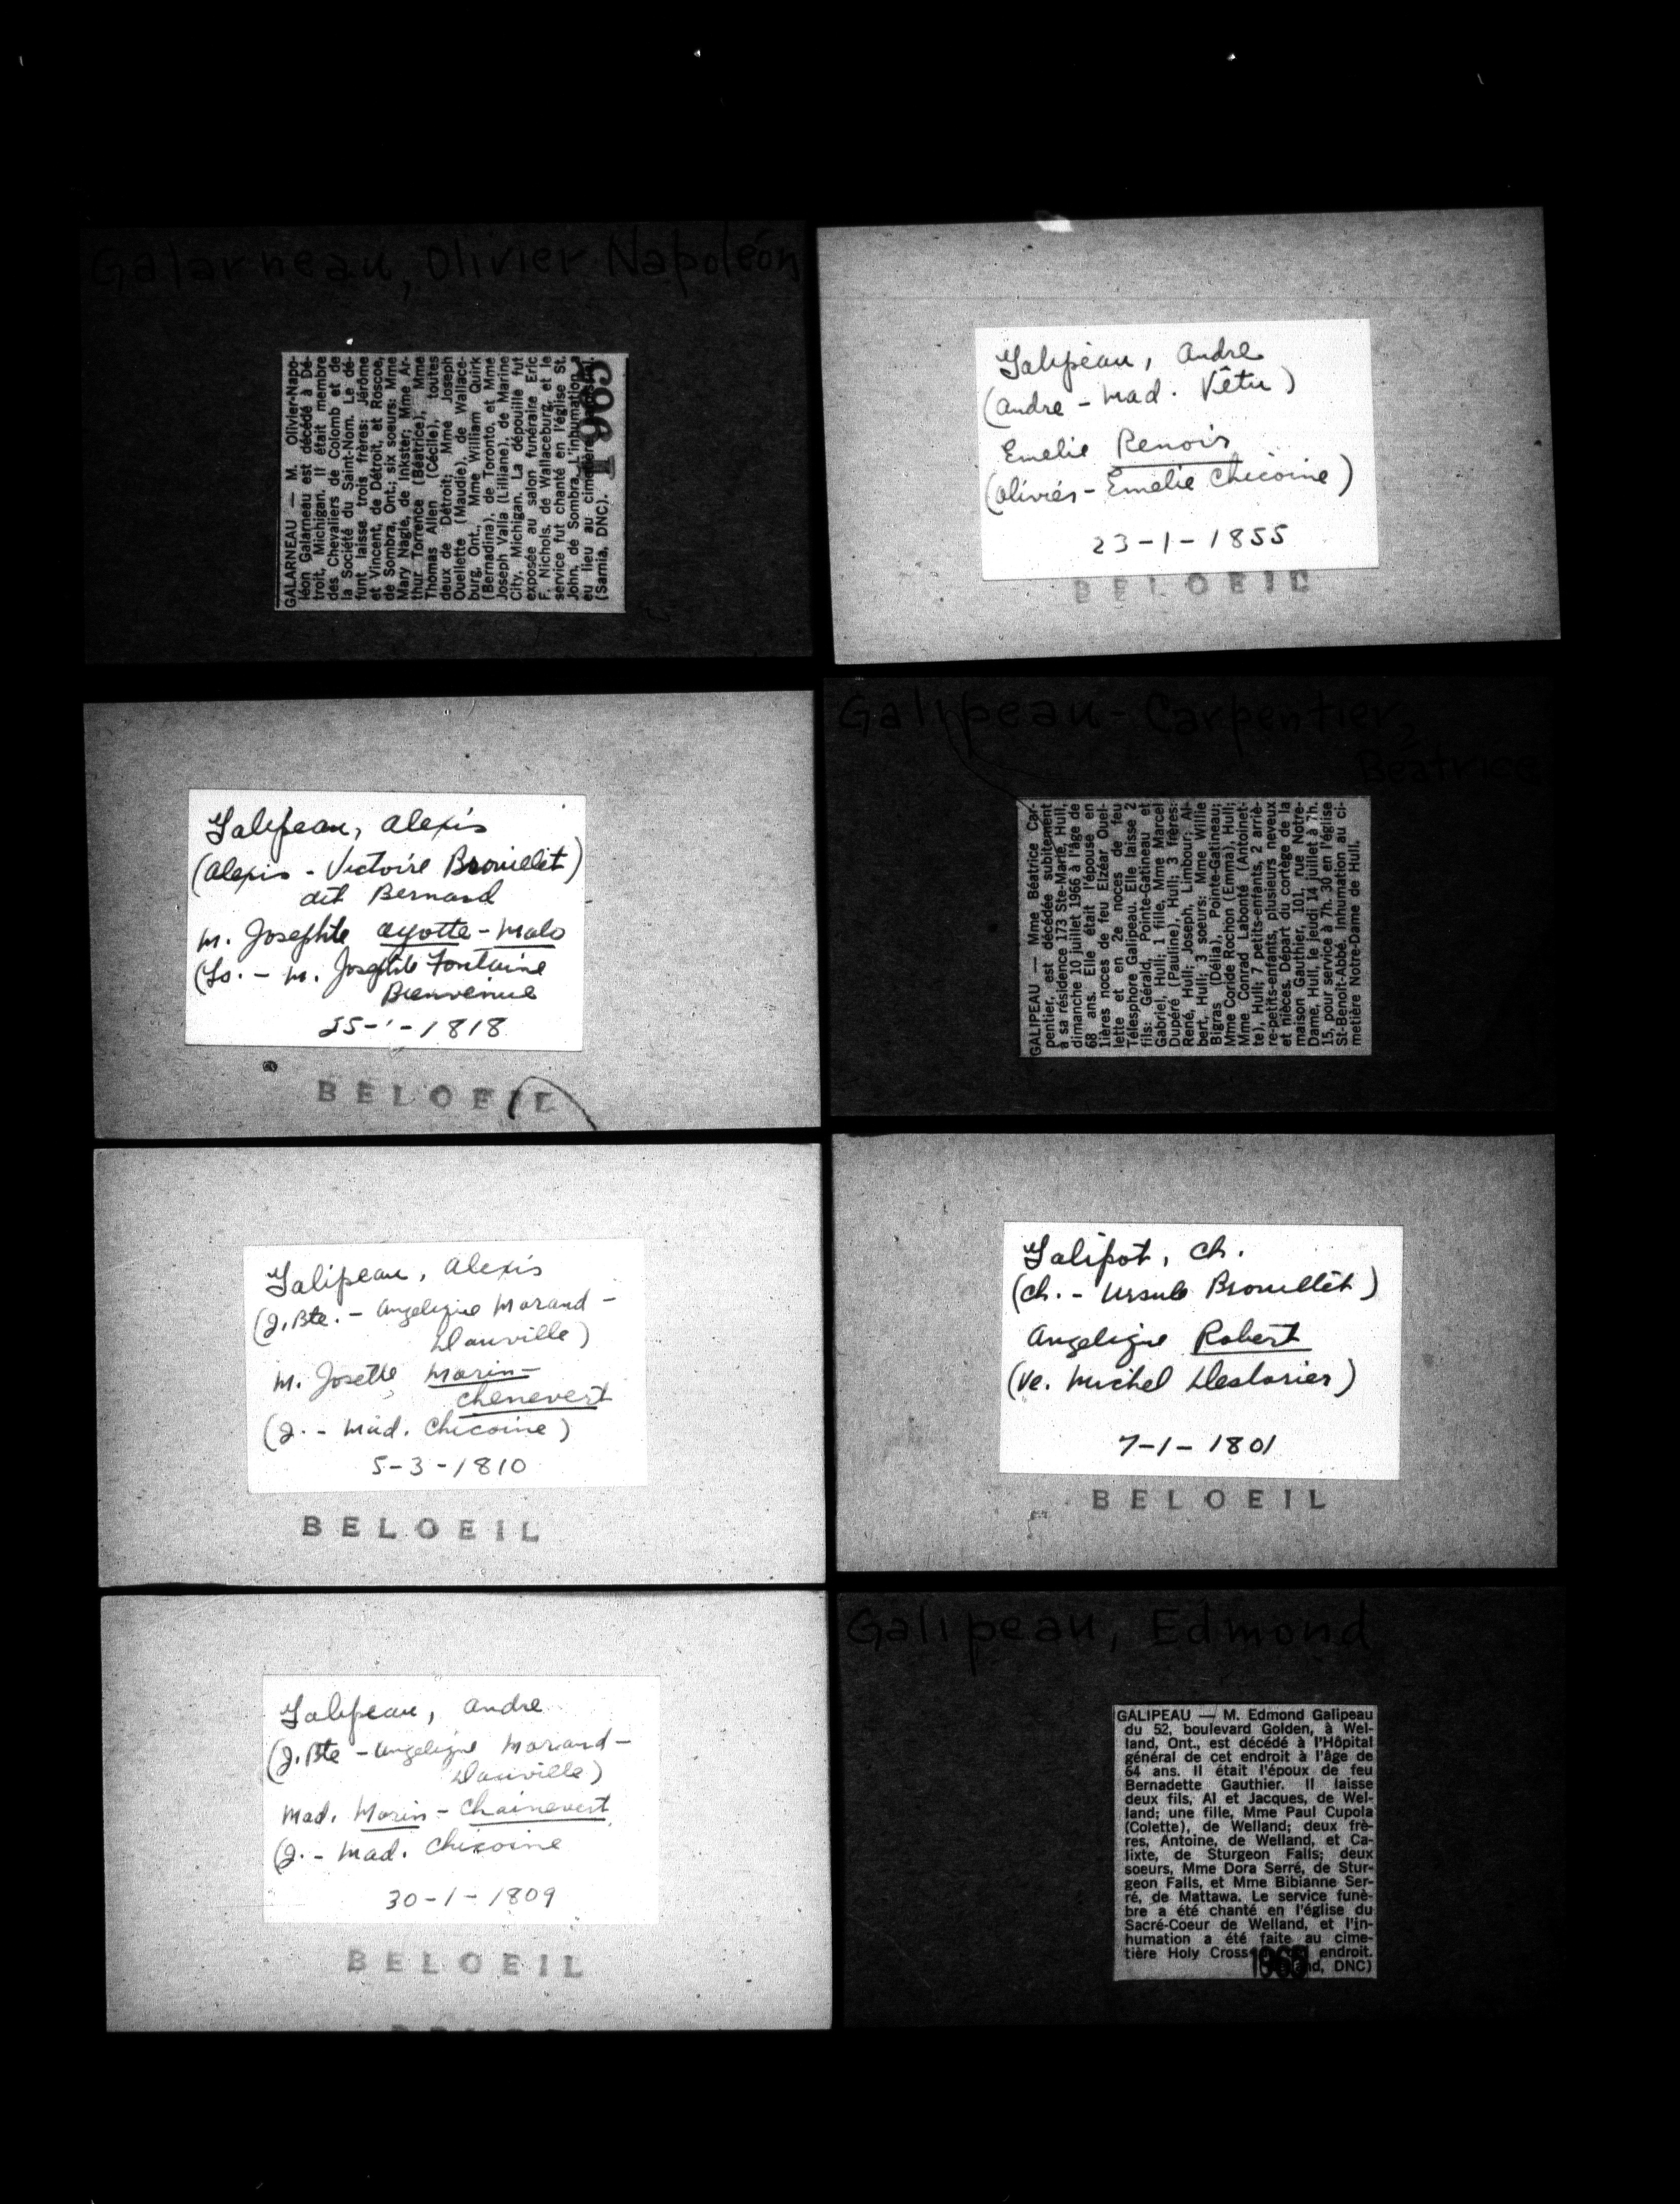 Galarneau, Olivier Napoléon
GALARNEAU — M. Olivier-Napo-
léon Galarneau est décédé à Dé-
troit, Michigan. Il était membre
des Chevaliers de Colomb et de
la Société du Saint-Nom. Le dé-
funt laisse trois frères: Jérôme
et Vincent, de Détroit, et Roscoe,
de Sombra, Ont.; six soeurs: Mme
Mary Nagle, de Inkster; Mme Ar-
thur Torrence (Béatrice), Mme
Thomas Allen (Cécile), toutes
deux de Détroit; Mme Joseph
Ouellette (Maudie), de Wallace-
burg, Ont., Mme William Quirk
(Bernadina), de Toronto, et Mme
Joseph Valla (Lilliane), de Marine
City, Michigan. La dépouille fut
exposée au salon funéraire Eric
F. Nichols, de Wallaceburg, et le
service fut chanté en l'église St.
John, de Sombra. L'inhumation a
eu lieu au cimetière
(Sarnia, DNC).
1965
Galipeau, Andre
(Andre - Mad. Vêtu)
Emelie Renois
(Oliviér - Emelie Chicoine)
23-1-1855
BELOEIL
Galipeau, Alexis
(Alexis - Victoire Brouillet)
dit Bernard
M. Josephte Ayotte-Malo
(Lo. - M. Josephte Fontaine
Bienvenue
25-1-1818
BELOEIL
Galipeau-Carpentier,
Béatrice
GALIPEAU — Mme Béatrice Car-
pentier, est décédée subitement
à sa résidence 173 Ste-Marie, Hull,
dimanche 10 juillet 1966 à l'âge de
68 ans. Elle était l'épouse en
1ières noces de feu Elzéar Ouel-
lette et en 2e noces de feu
Télesphore Galipeau. Elle laisse 2
fils: Gérald, Pointe-Gatineau et
Gabriel, Hull; 1 fille, Mme Marcel
Dupéré (Pauline), Hull; 3 frères:
René, Hull; Joseph, Limbour; Al-
bert, Hull; 3 soeurs: Mme Willie
Bigras (Délia), Pointe-Gatineau;
Mme Coride Rochon (Emma), Hull;
Mme Conrad Labonté (Antoinet-
te), Hull; 7 petits-enfants, 2 arriè-
re-petits-enfants, plusieurs neveux
et nièces. Départ du cortège de la
maison Gauthier, 101, rue Notre-
Dame, Hull, le jeudi 14 juillet à 7h.
15, pour service à 7h. 30 en l'église
St-Benoit-Abbé. Inhumation au ci-
metière Notre-Dame de Hull.
Galipeau, Alexis
(J.Bte. - Angelique Morand-
Dauville)
M. Josette Morin-
Chenevert
(J. - Mad. Chicoine)
5-3-1810
BELOEIL
Galipot, Ch.
(Ch. - Ursule Brouillet)
Angelique Robert
(Ve. Michel Deslorier)
7-1-1801
BELOEIL
Galipeau, Andre
(J.Bte - Angelique Morand-
Dauville)
Mad. Morin-Chainevert
(J. - Mad. Chicoine
30-1-1809
BELOEIL
Galipeau, Edmond
GALIPEAU — M. Edmond Galipeau
du 52, boulevard Golden, à Wel-
land, Ont., est décédé à l'Hôpital
général de cet endroit à l'âge de
64 ans. Il était l'époux de feu
Bernadette Gauthier. Il laisse
deux fils, Al et Jacques, de Wel-
land; une fille, Mme Paul Cupola
(Colette), de Welland; deux frè-
res, Antoine, de Welland, et Ca-
lixte, de Sturgeon Falls; deux
soeurs, Mme Dora Serré, de Stur-
geon Falls, et Mme Bibianne Ser-
ré, de Mattawa. Le service funè-
bre a été chanté en l'église du
Sacré-Coeur de Welland, et l'in-
humation a été faite au cime-
tière Holy Cross endroit.
DNC)
1965